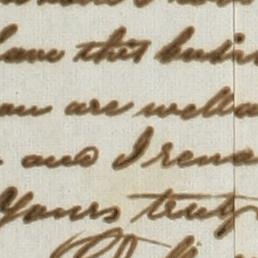 have this busi
you are well a
and I rema
Yours truly